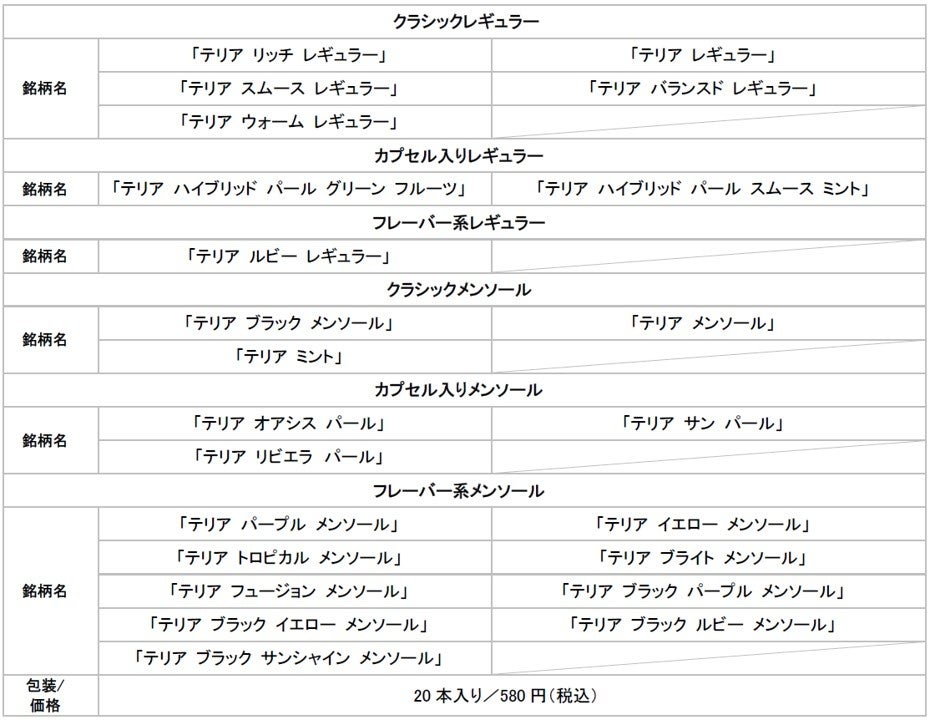 クラシックレギュラー
銘柄名
「テリア リッチ レギュラー」 「テリア レギュラー」
「テリア スムース レギュラー」 「テリア バランスド レギュラー」
「テリア ウォーム レギュラー」
カプセル入りレギュラー
銘柄名 「テリア ハイブリッド パール グリーン フルーツ」 「テリア ハイブリッド パール スムース ミント」
フレーバー系レギュラー
銘柄名 「テリア ルビー レギュラー」
クラシックメンソール
銘柄名
「テリア ブラック メンソール」 「テリア メンソール」
「テリア ミント」
カプセル入りメンソール
銘柄名
「テリア オアシス パール」 「テリア サン パール」
「テリア リビエラ パール」
フレーバー系メンソール
銘柄名
「テリア パープル メンソール」 「テリア イエロー メンソール」
「テリア トロピカル メンソール」 「テリア ブライト メンソール」
「テリア フュージョン メンソール」 「テリア ブラック パープル メンソール」
「テリア ブラック イエロー メンソール」 「テリア ブラック ルビー メンソール」
「テリア ブラック サンシャイン メンソール」
包装/
価格
20 本入り／580 円（税込）